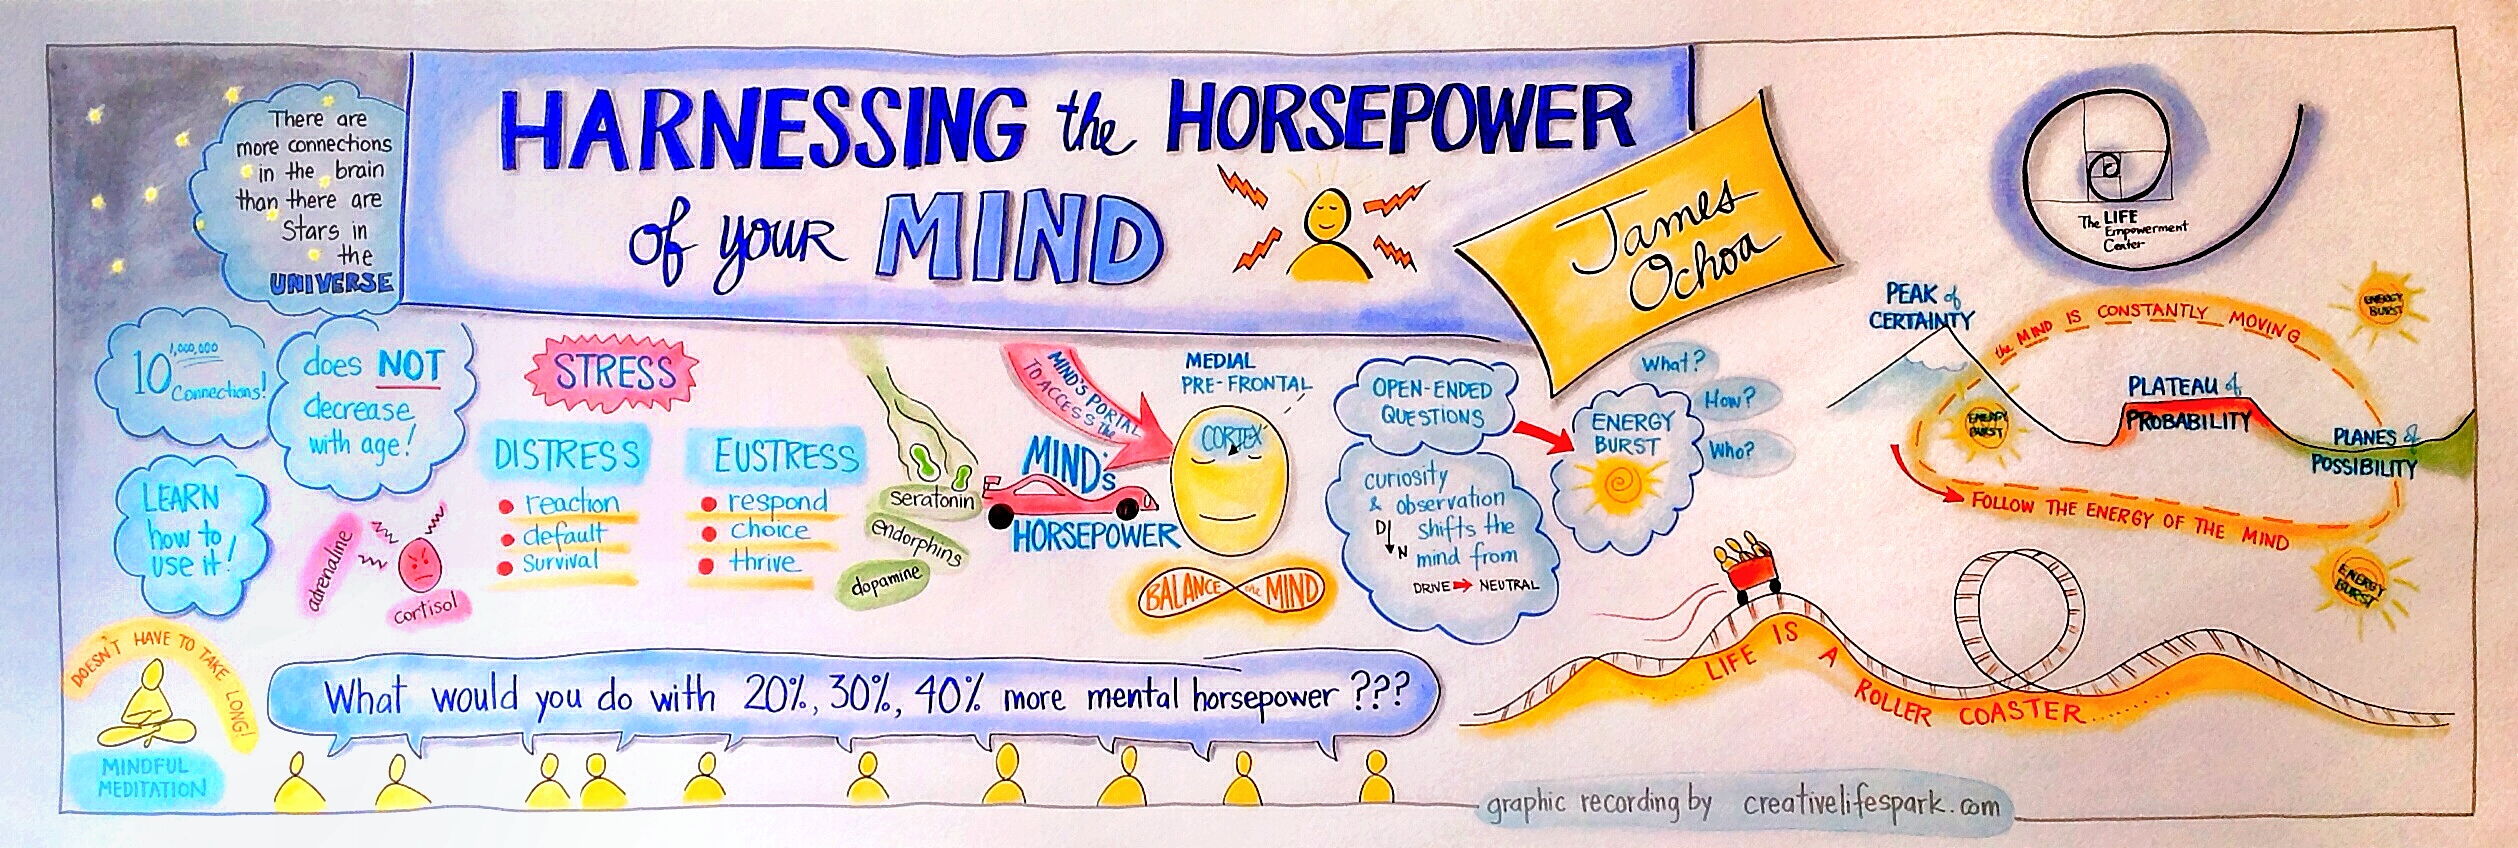 There are
more connections
in the brain
than there are
Stars in
the
UNIVERSE
HARNESSING the HORSEPOWER
of your MIND
James
Ochoa
The LIFE
Empowerment
Center
10 1,000,000
Connections!
does NOT
decrease
with age!
LEARN
how to
use it!
STRESS
DISTRESS
reaction
default
survival
adrenaline
cortisol
EUSTRESS
respond
choice
thrive
seratonin
endorphins
dopamine
MIND'S PORTAL
TO ACCESS the
MIND's
HORSEPOWER
MEDIAL
PRE-FRONTAL
CORTEX
BALANCE the MIND
OPEN-ENDED
QUESTIONS
curiosity
& observation
D shifts the
N mind from
DRIVE NEUTRAL
ENERGY
BURST
What?
How?
Who?
PEAK of
CERTAINTY
the MIND IS CONSTANTLY MOVING
ENERGY
BURST
ENERGY
BURST
PLATEAU of
PROBABILITY
PLANES of
POSSIBILITY
FOLLOW THE ENERGY OF THE MIND
ENERGY
BURST
LIFE IS A ROLLER COASTER........
DOESN'T HAVE TO TAKE LONG!
MINDFUL
MEDITATION
What would you do with 20%, 30%, 40% more mental horsepower ???
graphic recording by creativelifespark.com